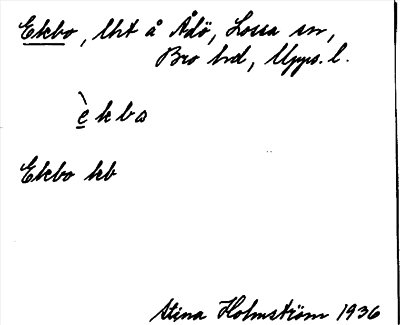 Ekbo, lht å Ådö, Lossa sn,
Bro hd, Upps. l.
èkbo
Ekbo kb
Stina Holmström 1936